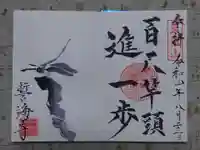 奉拝 令和二年八月
百尺竿頭
進一歩
誓海寺